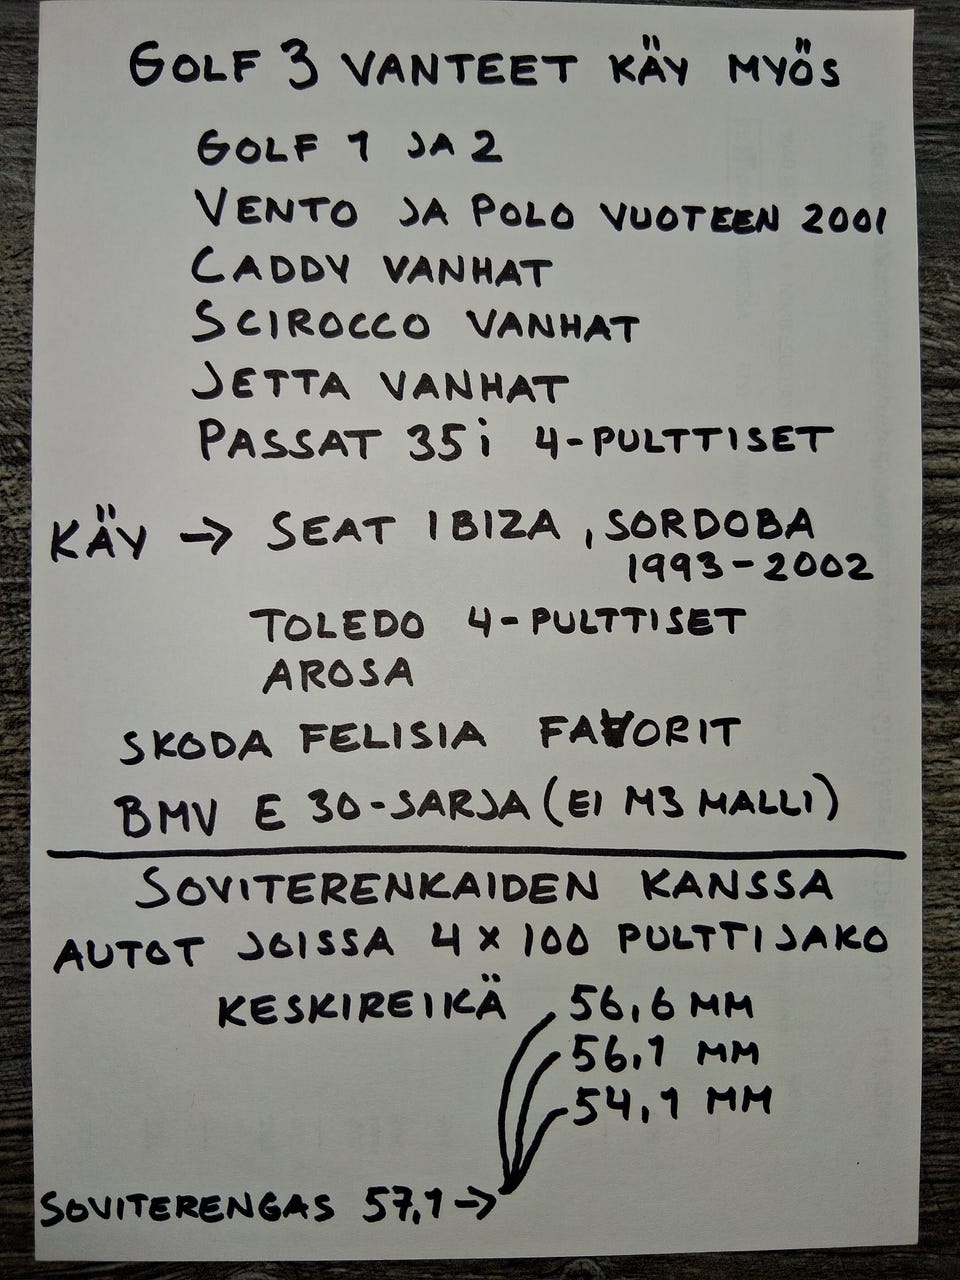 GOLF 3 VANTEET KÄY MYÖS
GOLF 1 JA 2
VENTO JA POLO VUOTEEN 2001
CADDY VANHAT
SCIROCCO VANHAT
JETTA VANHAT
PASSAT 35i 4-PULTTISET
KÄY → SEAT IBIZA, SORDOBA
1993-2002
TOLEDO 4-PULTTISET
AROSA
SKODA FELISIA FAVORIT
BMV E 30-SARJA (EI M3 MALLI)
SOVITERENKAIDEN KANSSA
AUTOT JOISSA 4 x 100 PULTTIJAKO
KESKIREIKÄ 56,6 MM
56,1 MM
54,1 MM
SOVITERENGAS 57,1 →